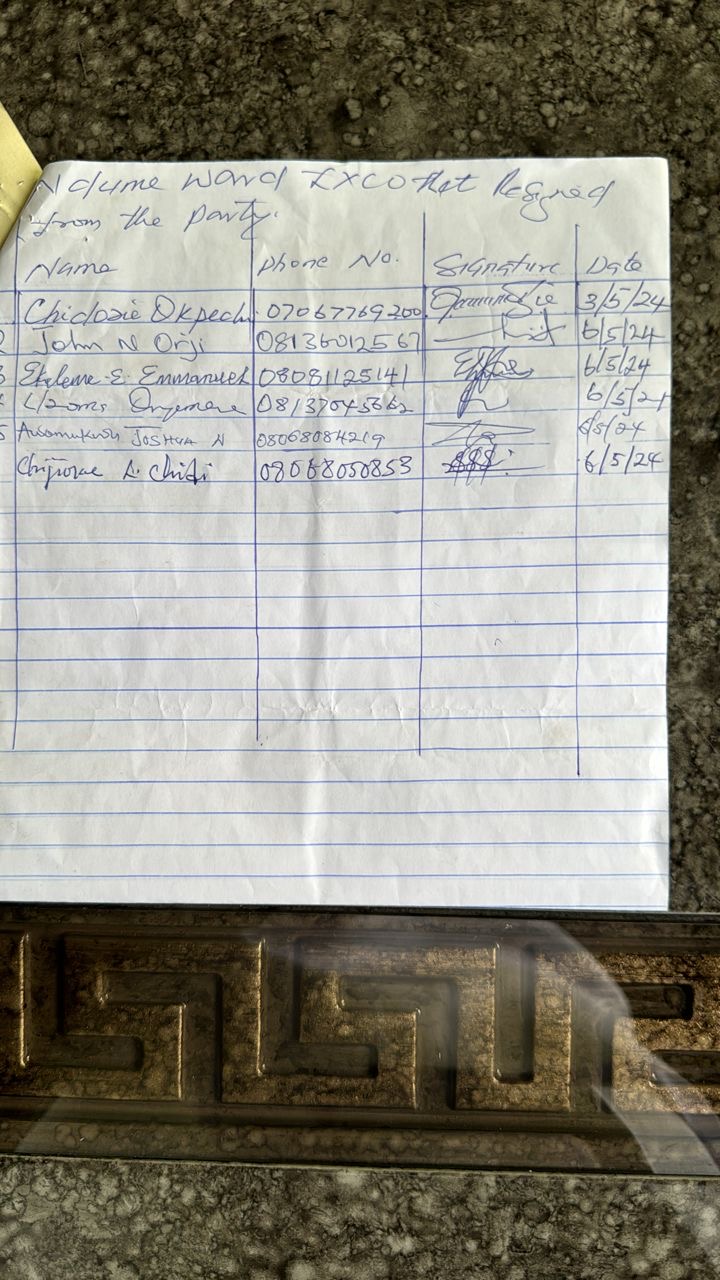 Ndume Ward EXCO that Resigned
from the Party.
Name Phone No. Signature Date
Chidozie Okpechi 07067769200 3/5/24
2 John N Orji 08136012567 6/5/24
3 Ekeleme E. Emmanuel 08081125141 6/5/24
4 08137045662 6/5/24
5 JOSHUA N 08068084219 6/5/24
Chijioke A. Chidi 08068050853 6/5/24